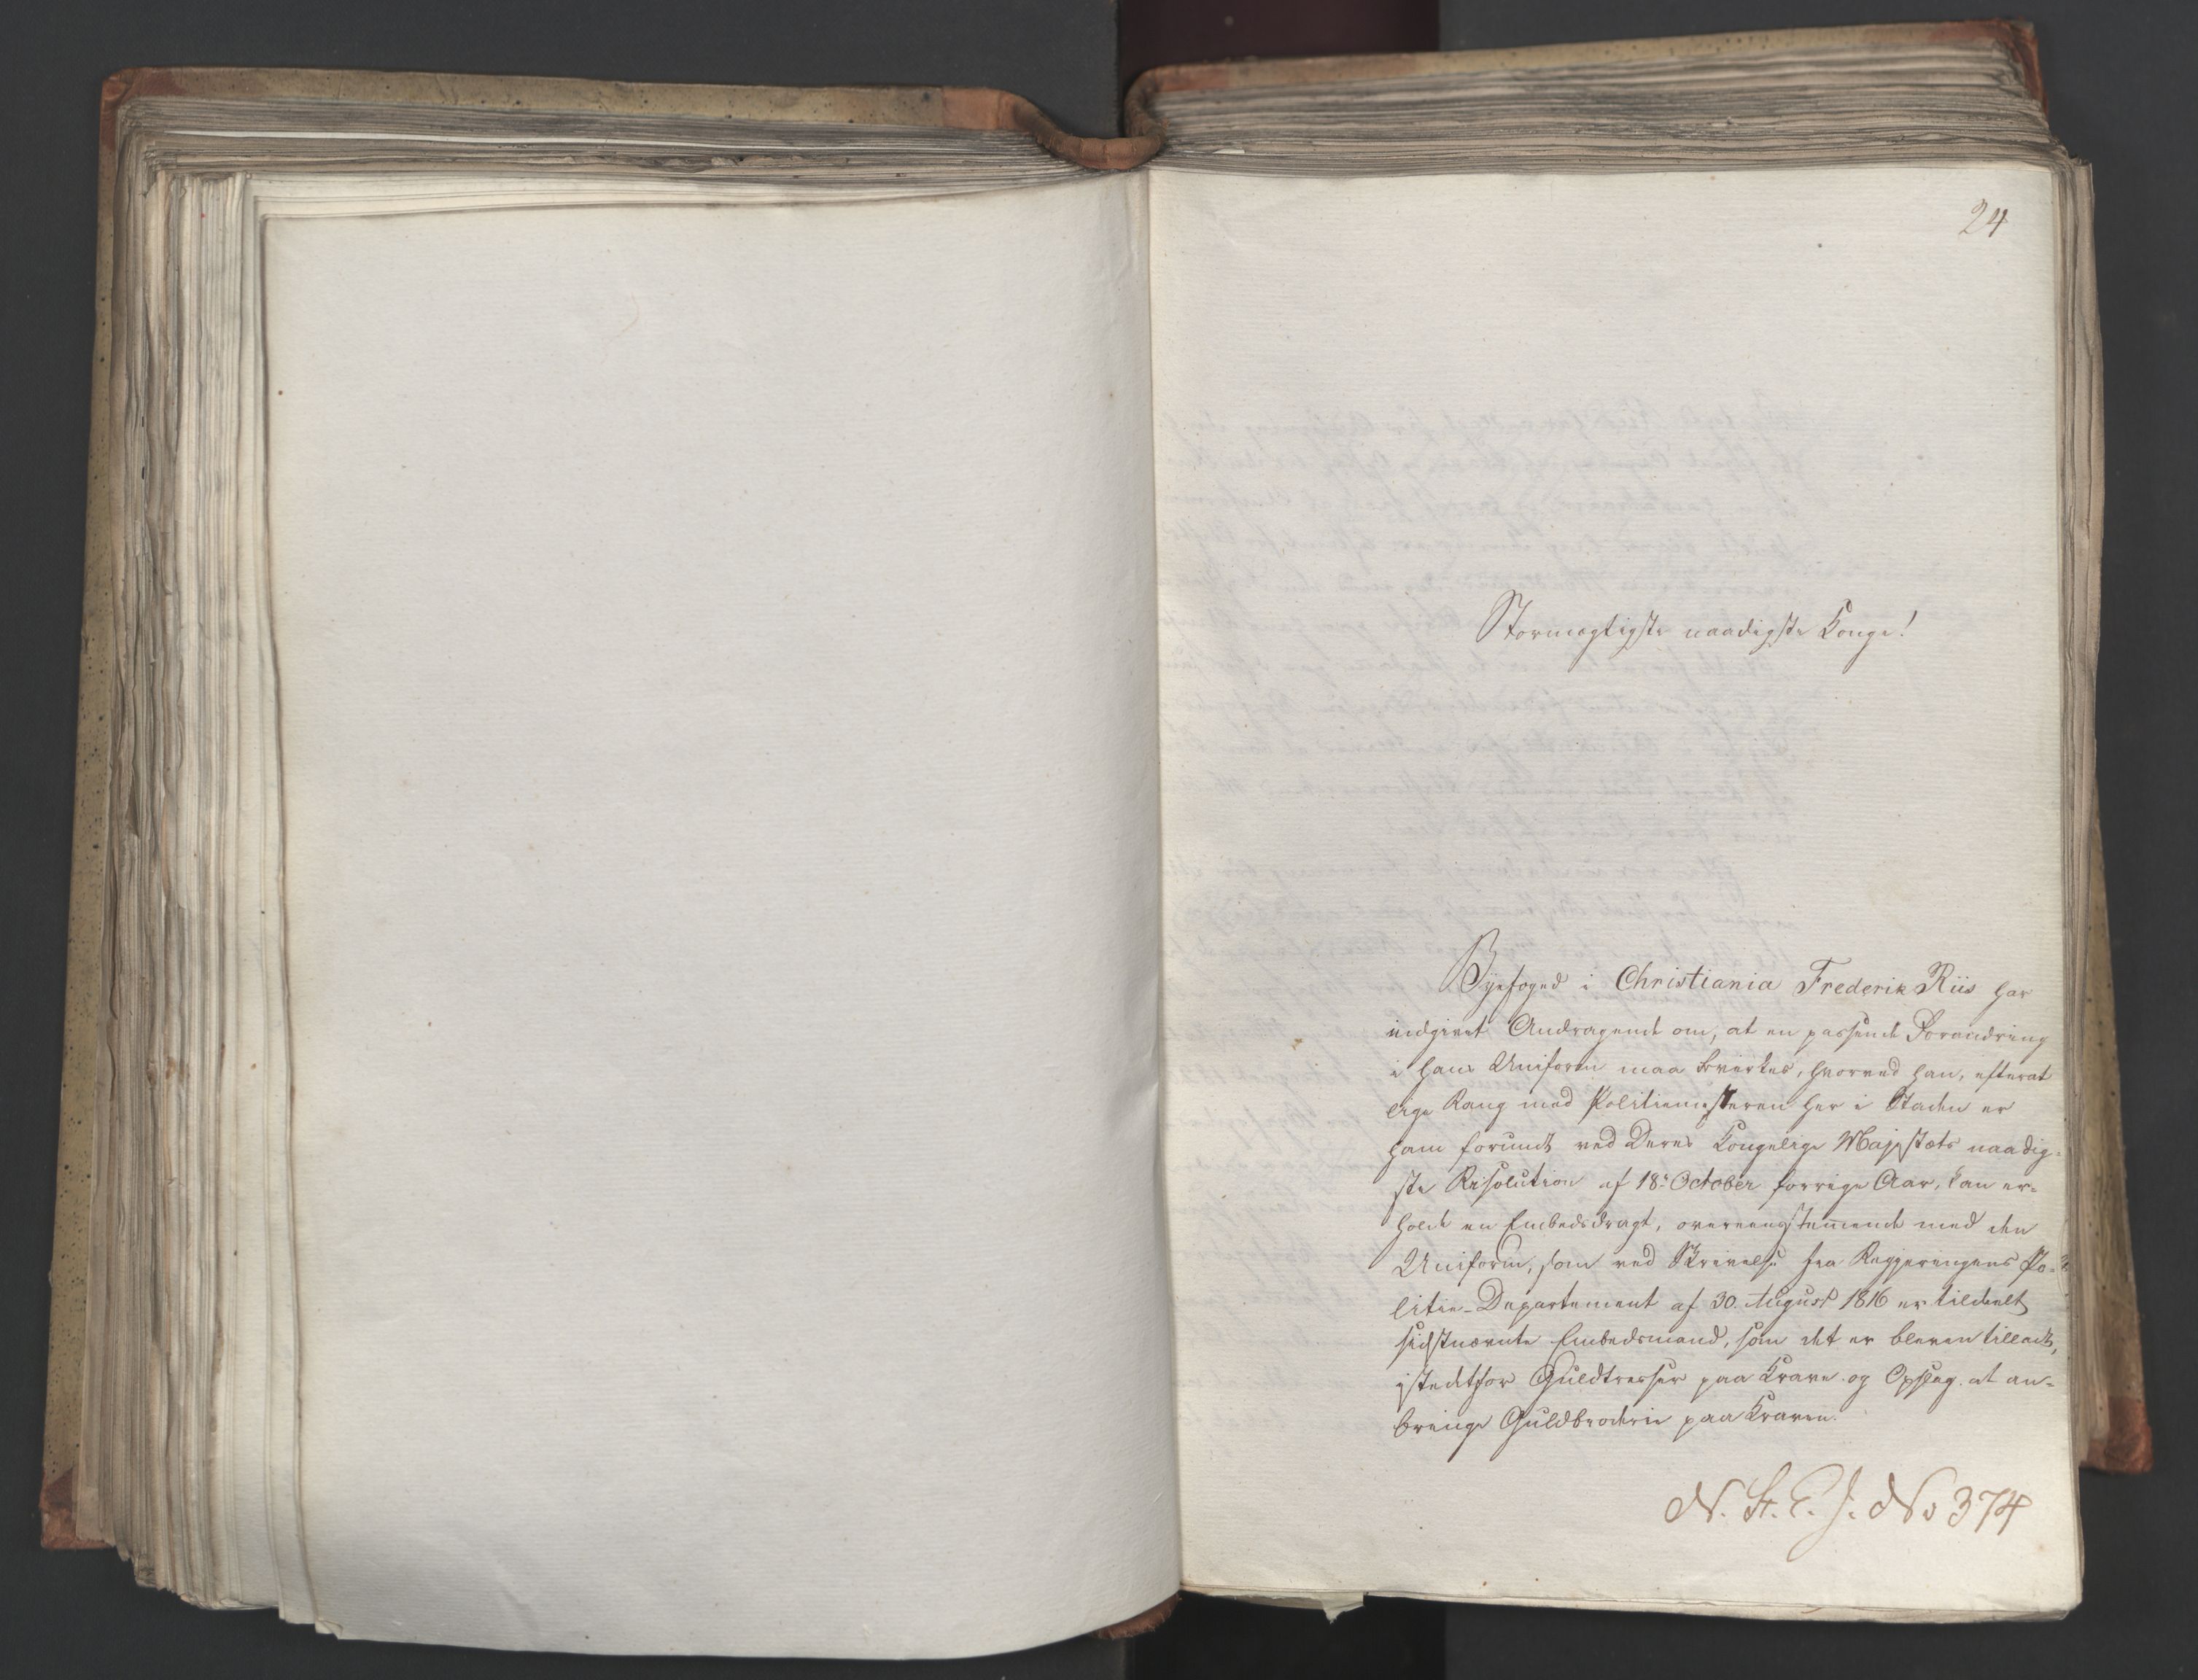 24
Stormægtigste naadigste Konge!
Byefoged i Christiania Frederik Riis har
indgivet Andragende om, at en passende Forandring
i hans Uniform maa bevirkes, hvorved han, efterat
lige Rang med Politiemesteren her i Staden er
ham forundt ved Deres Kongelige Majestæts naadig-
ste Resolution af 18de October forrige Aar, kan er-
holde en Embedsdragt, overeensstemmende med den
Uniform, som ved Skrivelse fra Regjeringens Po-
litie-Departement af 30. August 1816 er tildeelt
sidstnævnte Embedsmand, som det er bleven tilladt,
istedetfor Guldtresser paa Krave og Opslag at an-
bringe Guldbroderie paa Kraven.
N. St. E. J. No 374